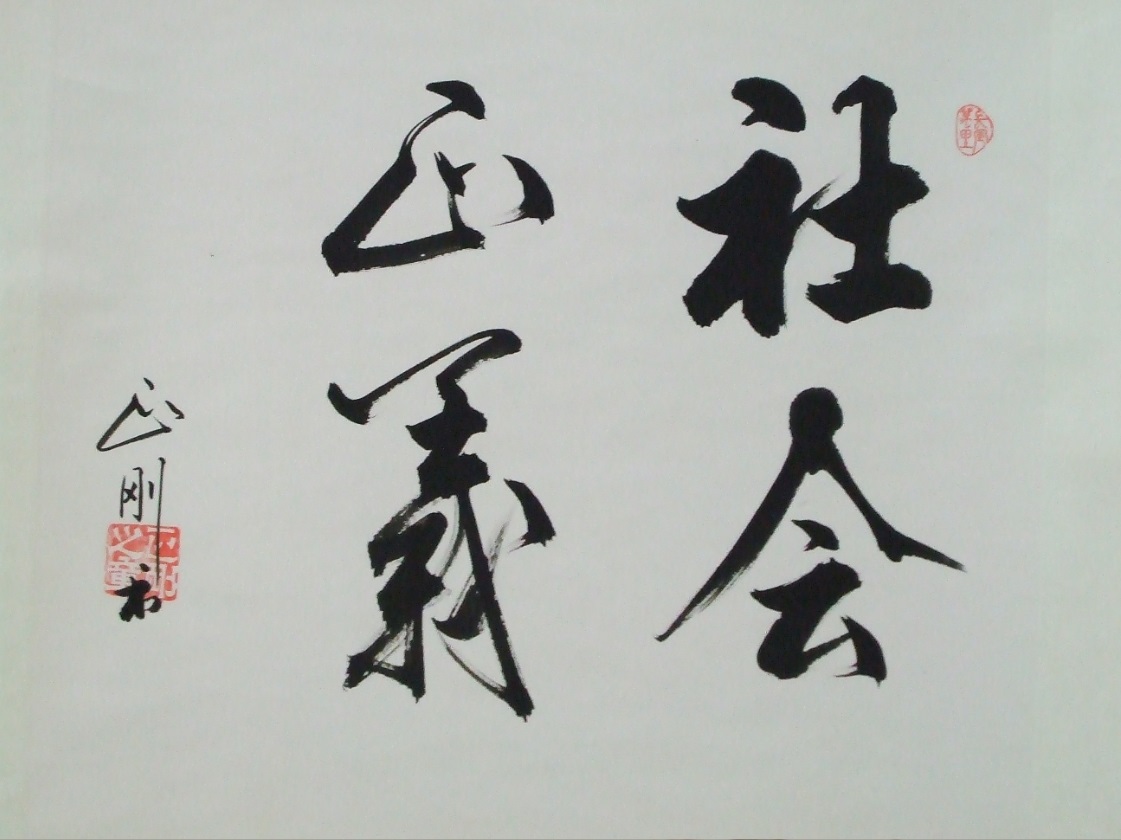 社会
正義
正剛书